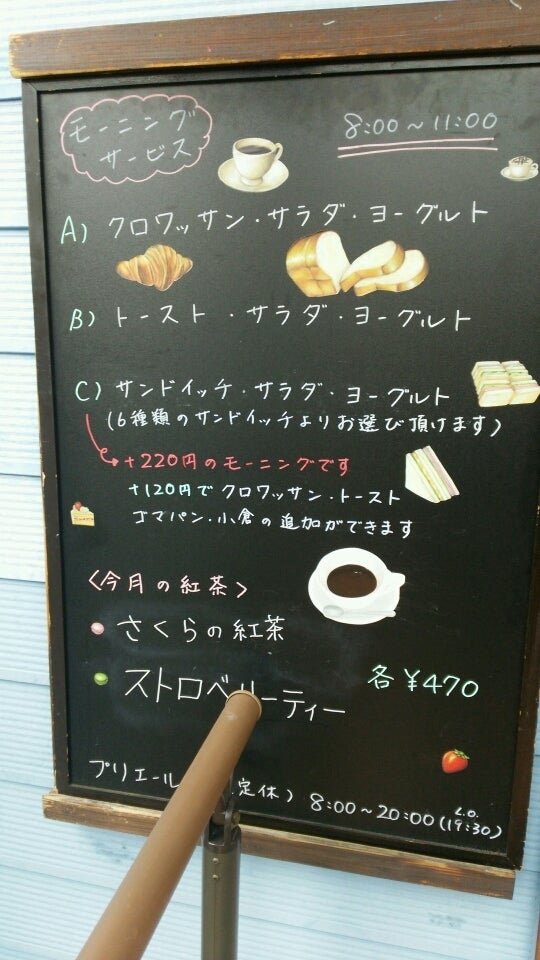 モーニング
サービス
8:00～11:00
A) クロワッサン・サラダ・ヨーグルト
B) トースト・サラダ・ヨーグルト
C) サンドイッチ・サラダ・ヨーグルト
(6種類のサンドイッチよりお選び頂けます)
+220円のモーニングです
+120円でクロワッサン・トースト
ゴマパン・小倉の追加ができます
<今月の紅茶>
さくらの紅茶
ストロベリーティー
各¥470
プリエール 定休) 8:00～20:00(19:30)
L.O.